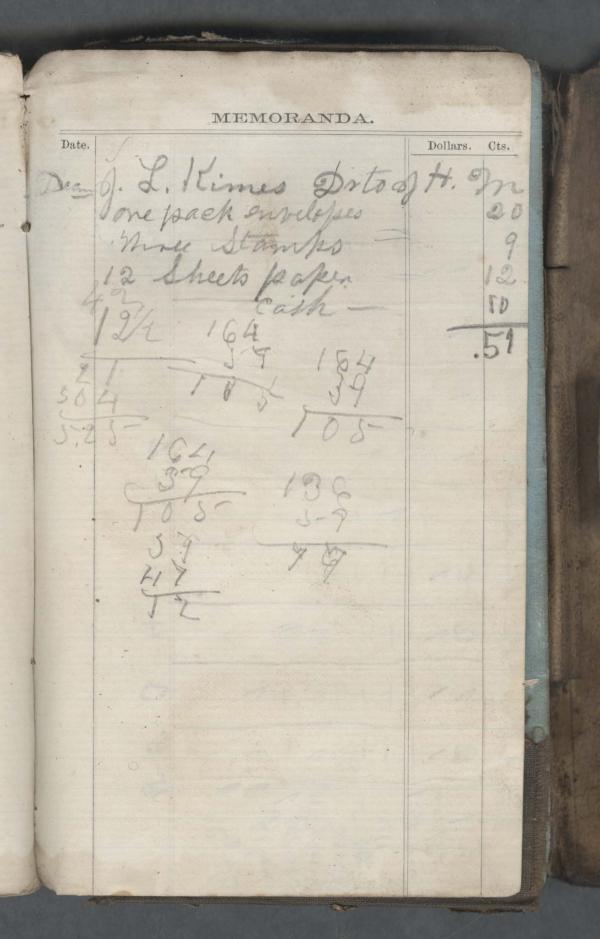 MEMORANDA.
Date. Dollars. Cts.
J. L. Kimes Dr to J. H. M
one pack envelopes 20
three Stamps = 9
12 Sheets paper 12
Cash — 10
.51
42
19½ 164 164
59 59
21 105 105
504
525
164 136
59 59
105 77
59
47
12